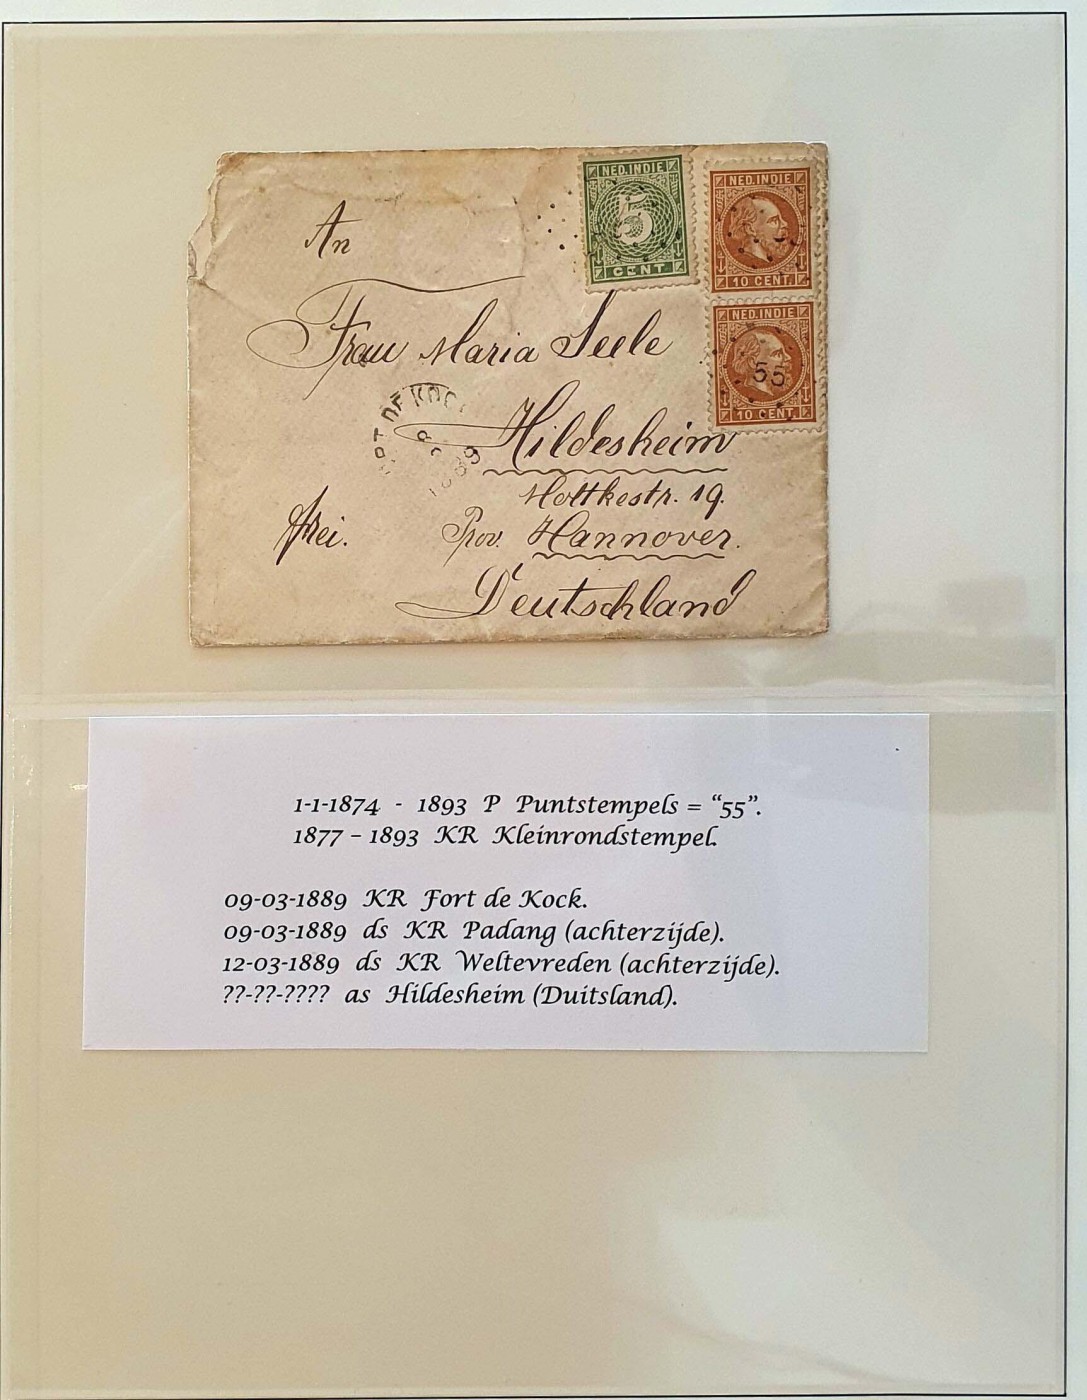 NED. INDIE
5
CENT
NED. INDIE
10 CENT.
NED. INDIE
55
10 CENT.
An
Frau Maria Seele
RT DE KOC
1889
Hildesheim
Moltkestr. 19.
frei. Prov. Hannover.
Deutschland
1-1-1874 - 1893 P Puntstempels = “55”.
1877 – 1893 KR Kleinrondstempel.
09-03-1889 KR Fort de Kock.
09-03-1889 ds KR Padang (achterzijde).
12-03-1889 ds KR Weltevreden (achterzijde).
??-??-???? as Hildesheim (Duitsland).